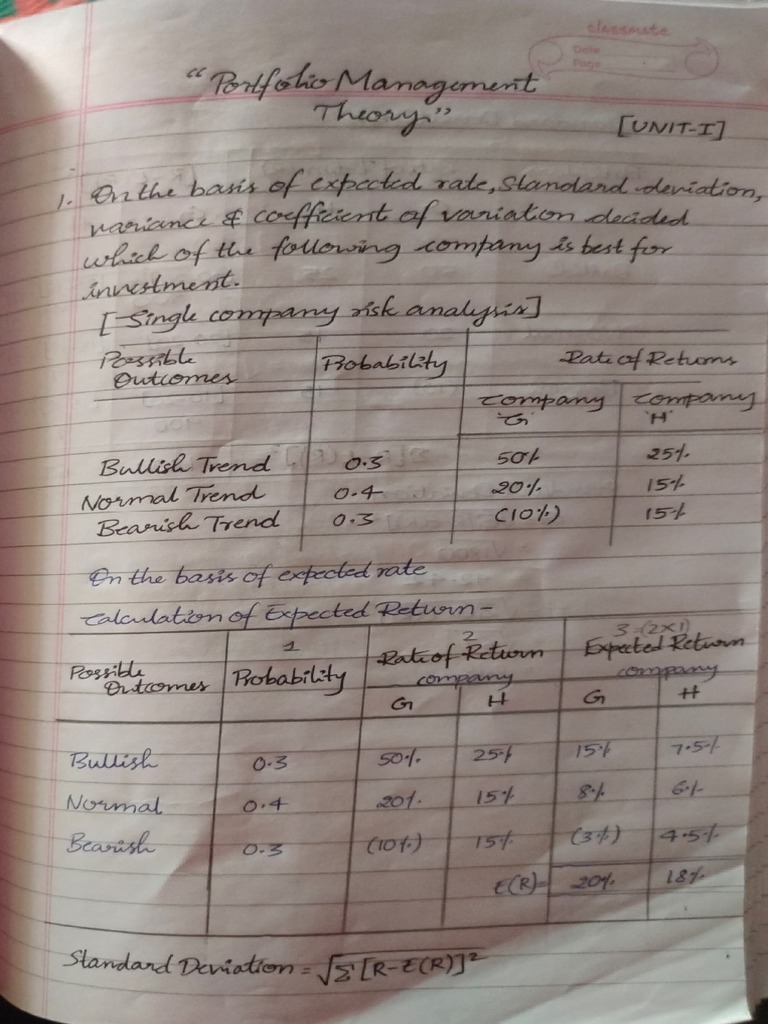 classmate
Date
Page
"Portfolio Management
Theory"
[UNIT-I]
1. On the basis of expected rate, Standard deviation,
variance & coefficient of variation decided
which of the following company is best for
investment.
[Single company risk analysis]
Possible Outcomes Probability Rate of Returns
Company 'G' Company 'H'
Bullish Trend 0.3 50% 25%
Normal Trend 0.4 20% 15%
Bearish Trend 0.3 (10%) 15%
On the basis of expected rate
Calculation of Expected Return -
1 2 3-(2×1)
Possible Outcomes Probability Rate of Return company Expected Return company
G H G H
Bullish 0.3 50% 25% 15% 7.5%
Normal 0.4 20% 15% 8% 6%
Bearish 0.3 (10%) 15% (3%) 4.5%
E(R)= 20% 18%
Standard Deviation = √Σ[R-E(R)]²